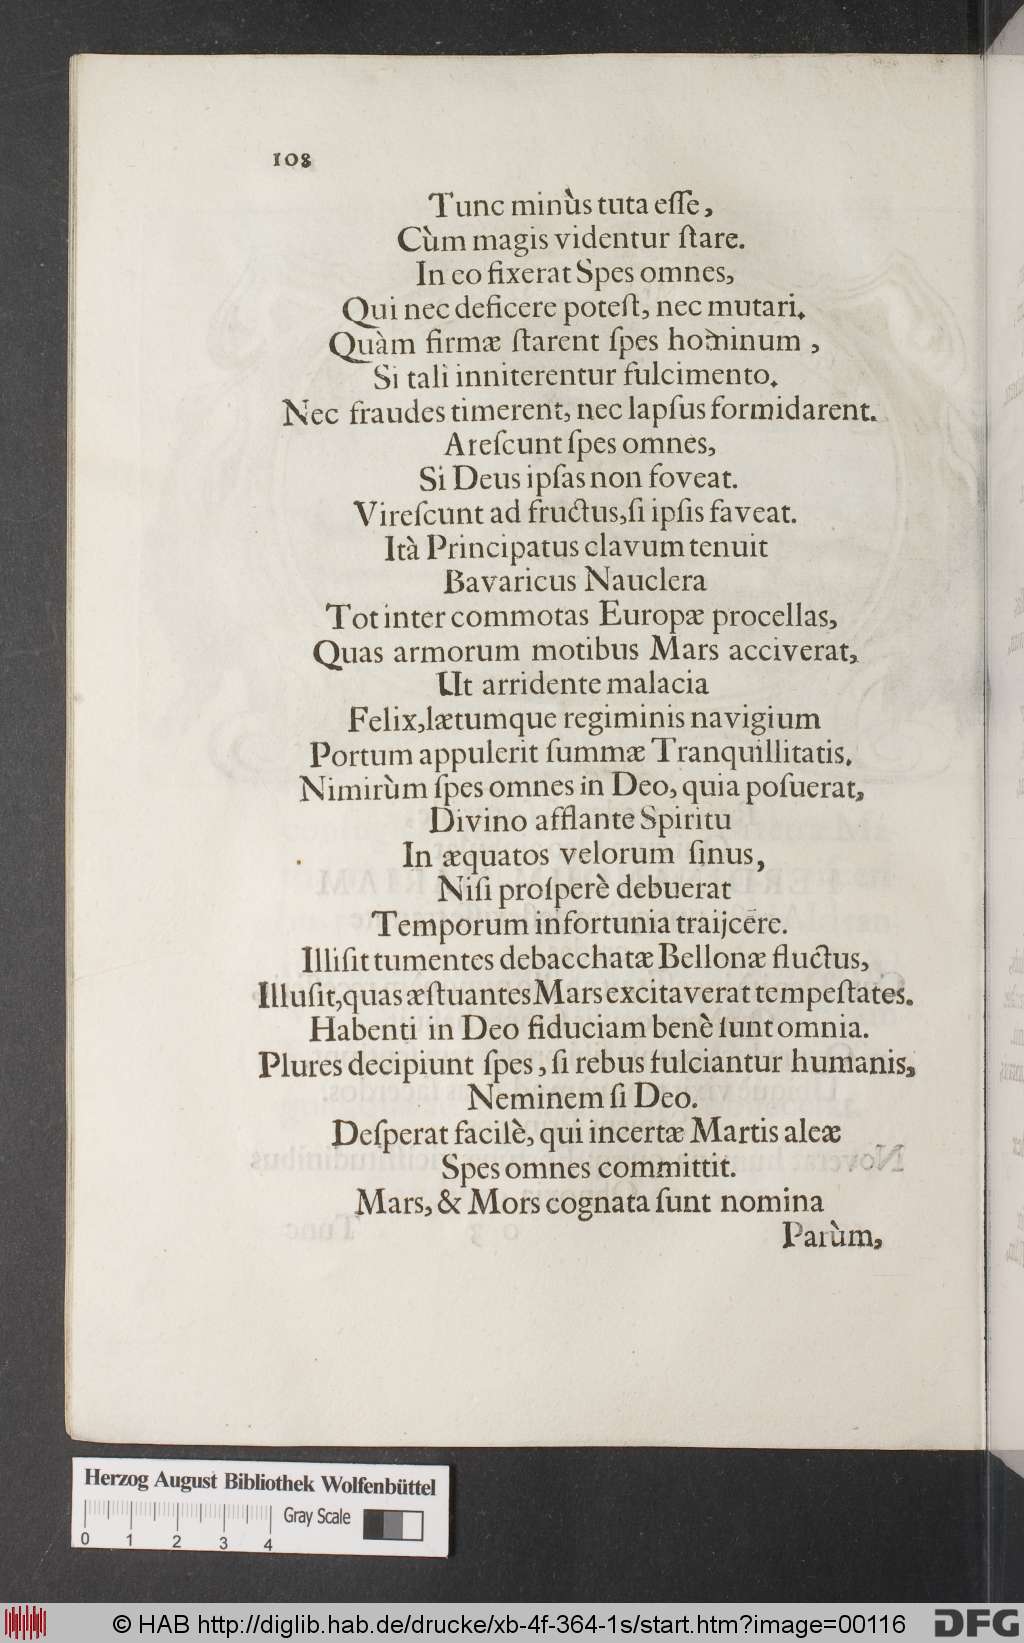 108
Tunc minùs tuta eſſe,
Cùm magis videntur ſtare.
In eo fixerat Spes omnes,
Qui nec deficere poteſt, nec mutari.
Quàm firmæ ſtarent ſpes hominum ,
Si tali inniterentur fulcimento.
Nec fraudes timerent, nec lapſus formidarent.
Areſcunt ſpes omnes,
Si Deus ipſas non foveat.
Vireſcunt ad fructus, ſi ipſis faveat.
Ità Principatus clavum tenuit
Bavaricus Nauclera
Tot inter commotas Europæ procellas,
Quas armorum motibus Mars acciverat,
Ut arridente malacia
Felix, lætumque regiminis navigium
Portum appulerit ſummæ Tranquillitatis.
Nimirùm ſpes omnes in Deo, quia poſuerat,
Divino afflante Spiritu
In æquatos velorum ſinus,
Niſi proſperè debuerat
Temporum infortunia traijcere.
Illiſit tumentes debacchatæ Bellonæ fluctus,
Illuſit, quas æſtuantes Mars excitaverat tempeſtates.
Habenti in Deo fiduciam benè ſunt omnia.
Plures decipiunt ſpes, ſi rebus fulciantur humanis,
Neminem ſi Deo.
Deſperat facilè, qui incertæ Martis aleæ
Spes omnes committit.
Mars, & Mors cognata ſunt nomina
Parùm,
Herzog August Bibliothek Wolfenbüttel
Gray Scale
0 1 2 3 4
© HAB http://diglib.hab.de/drucke/xb-4f-364-1s/start.htm?image=00116
DFG